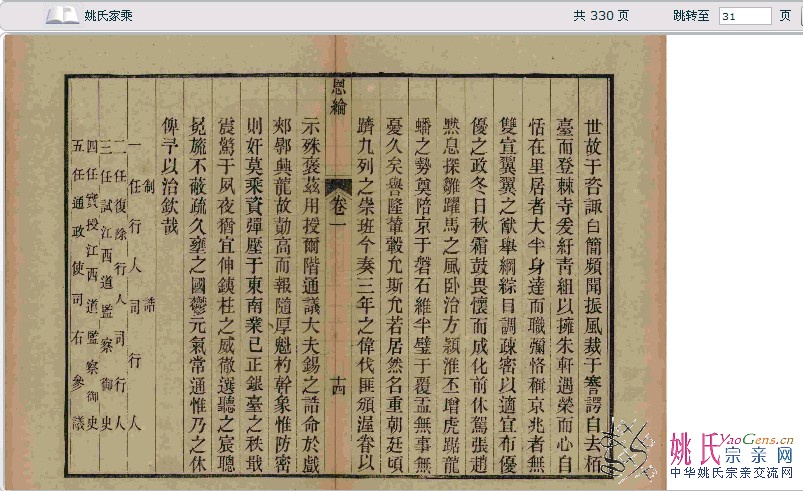 姚氏家乘
共 330 页
跳转至 31 页
世故于咨諏白簡頻聞振風裁于謇諤自去栢
臺而登棘寺爰紆靑組以擁朱軒遇榮而心自
恬在里居者大半身逹而職彌恪稱京兆者無
雙宣翼翼之猷舉綱綜目調疎密以適宜布優
優之政冬日秋霜鼓畏懷而成化前休駕張趙
黙息探雛躍馬之風卧治方潁淮丕增虎踞龍
蟠之勢奠陪京于磐石維半璧于覆盂無事無
憂久矣譽隆輦轂允斯允若居然名重朝廷頃
躋九列之崇班今奏三年之偉伐匪頒渥眷以
恩綸 卷一 十四
示殊褒茲用授爾階通議大夫錫之誥命於戲
郟鄏興龍故勛高而報隨厚魁杓幹象惟防密
則奸莫乘資彈壓于東南業已正銀臺之秩戢
震驚于夙夜猶宜伸鉄柱之威徹遐聽之宸聰
冕旒不蔽疏久壅之國鬱元氣常通惟乃之休
俾予以治欽哉
制誥
一任行人司行人
二任復除行人司行人
三任試江西道監察御史
四任實授江西道監察御史
五任通政使司右參議
姚氏宗亲网
YaoGens.cn
中华姚氏宗亲交流网